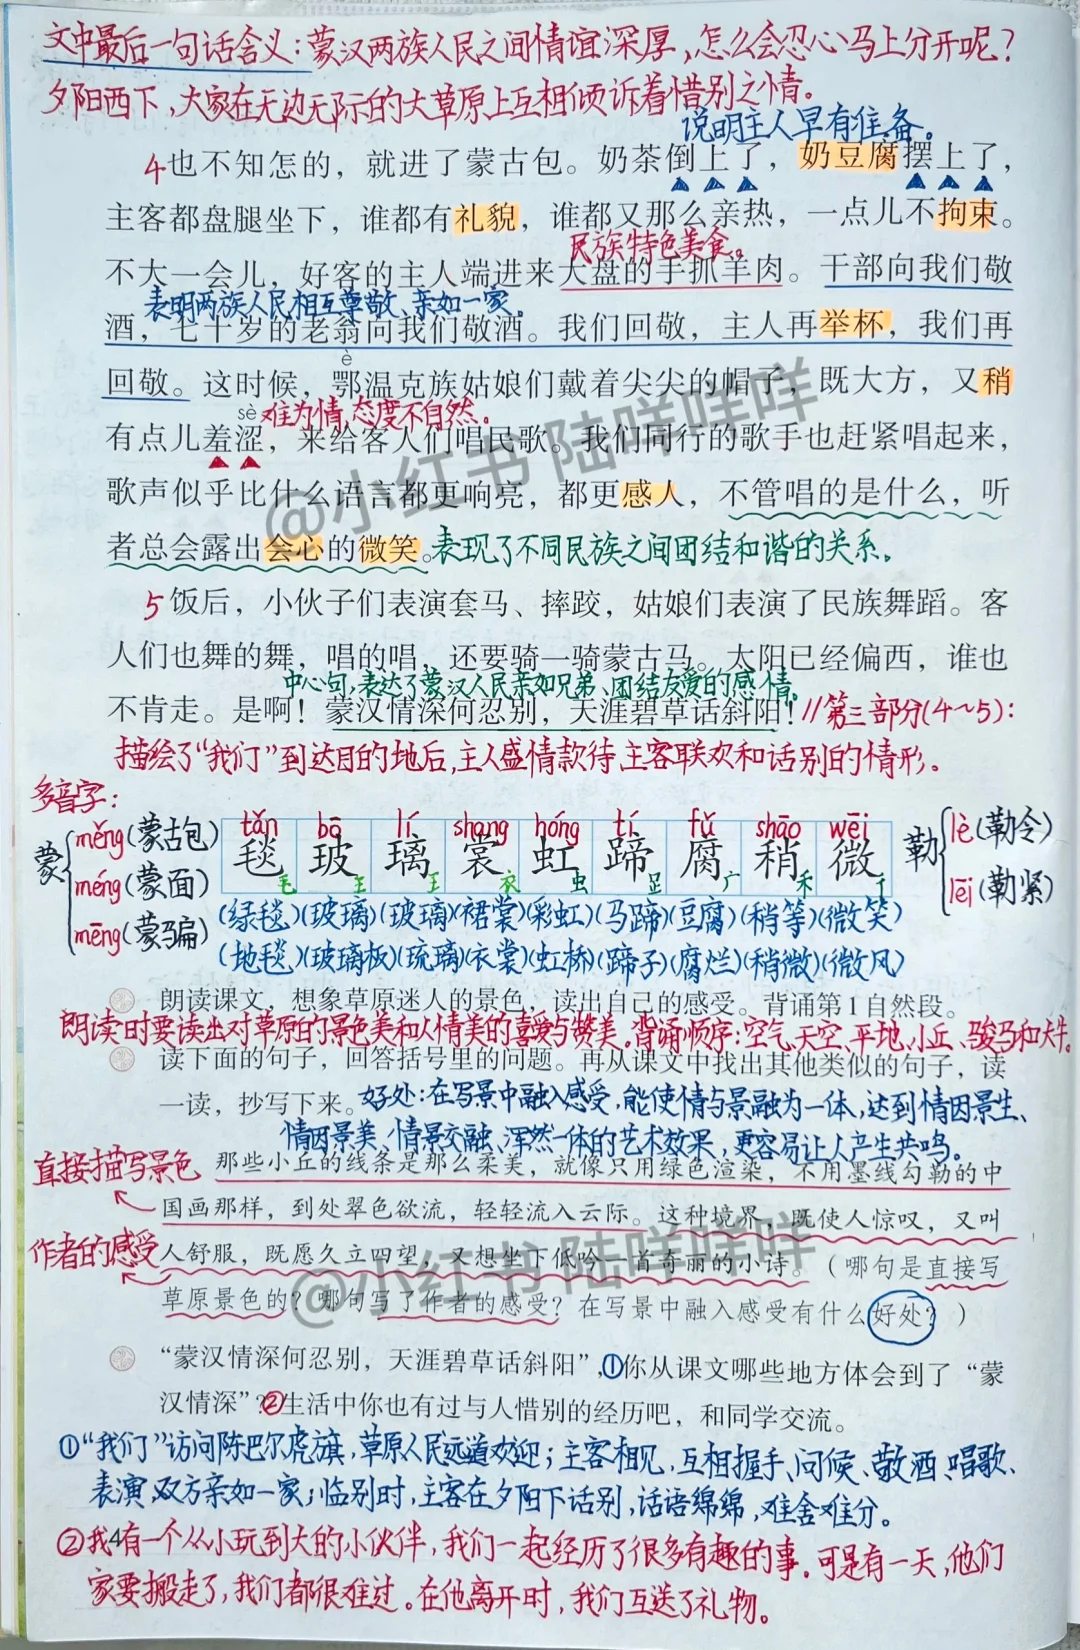 文中最后一句话含义：蒙汉两族人民之间情谊深厚，怎么会忍心马上分开呢？
夕阳西下，大家在无边无际的大草原上互相倾诉着惜别之情。
说明主人早有准备。
4也不知怎的，就进了蒙古包。奶茶倒上了，奶豆腐摆上了，
主客都盘腿坐下，谁都有礼貌，谁都又那么亲热，一点儿不拘束。
民族特色美食。
不大一会儿，好客的主人端进来大盘的手抓羊肉。干部向我们敬
表明两族人民相互尊敬、亲如一家。
酒，七十岁的老翁向我们敬酒。我们回敬，主人再举杯，我们再
è
回敬。这时候，鄂温克族姑娘们戴着尖尖的帽子，既大方，又稍
sè 难为情，态度不自然。
有点儿羞涩，来给客人们唱民歌。我们同行的歌手也赶紧唱起来，
歌声似乎比什么语言都更响亮，都更感人，不管唱的是什么，听
者总会露出会心的微笑。表现了不同民族之间团结和谐的关系。
5饭后，小伙子们表演套马、摔跤，姑娘们表演了民族舞蹈。客
人们也舞的舞，唱的唱，还要骑一骑蒙古马。太阳已经偏西，谁也
中心句，表达了蒙汉人民亲如兄弟、团结友爱的感情。
不肯走。是啊！蒙汉情深何忍别，天涯碧草话斜阳！//第三部分(4～5)：
描绘了“我们”到达目的地后，主人盛情款待、主客联欢和话别的情形。
多音字：
蒙 měng(蒙古包) méng(蒙面) mēng(蒙骗)
tǎn bō lí shang hóng tí fǔ shāo wēi
毯 玻 璃 裳 虹 蹄 腐 稍 微
毛 王 王 衣 虫 足 广 禾 彳
勒 lè(勒令) lēi(勒紧)
(绿毯)(玻璃)(玻璃)(裙裳)(彩虹)(马蹄)(豆腐)(稍等)(微笑)
(地毯)(玻璃板)(琉璃)(衣裳)(虹桥)(蹄子)(腐烂)(稍微)(微风)
朗读课文，想象草原迷人的景色，读出自己的感受。背诵第1自然段。
朗读时要读出对草原的景色美和人情美的喜爱与赞美。背诵顺序：空气、天空、平地、小丘、骏马和大牛。
读下面的句子，回答括号里的问题。再从课文中找出其他类似的句子，读
一读，抄写下来。好处：在写景中融入感受，能使情与景融为一体，达到情因景生、
情因景美、情景交融、浑然一体的艺术效果，更容易让人产生共鸣。
直接描写景色 那些小丘的线条是那么柔美，就像只用绿色渲染，不用墨线勾勒的中
国画那样，到处翠色欲流，轻轻流入云际。这种境界，既使人惊叹，又叫
作者的感受 人舒服，既愿久立四望，又想坐下低吟一首奇丽的小诗。（哪句是直接写
草原景色的？哪句写了作者的感受？在写景中融入感受有什么好处？）
“蒙汉情深何忍别，天涯碧草话斜阳”，①你从课文哪些地方体会到了“蒙
汉情深”？②生活中你也有过与人惜别的经历吧，和同学交流。
①“我们”访问陈巴尔虎旗，草原人民远道欢迎；主客相见，互相握手、问候、敬酒、唱歌、
表演，双方亲如一家；临别时，主客在夕阳下话别，话语绵绵，难舍难分。
4
②我有一个从小玩到大的小伙伴，我们一起经历了很多有趣的事。可是有一天，他们
家要搬走了，我们都很难过。在他离开时，我们互送了礼物。
@小红书 陆咩咩咩
@小红书 陆咩咩咩